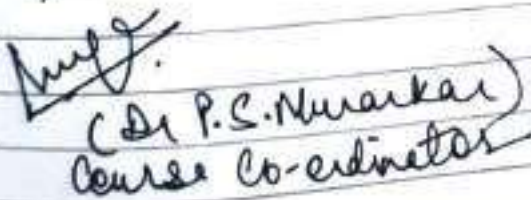 (Dr P.S. Murarkar)
Course Co-ordinator